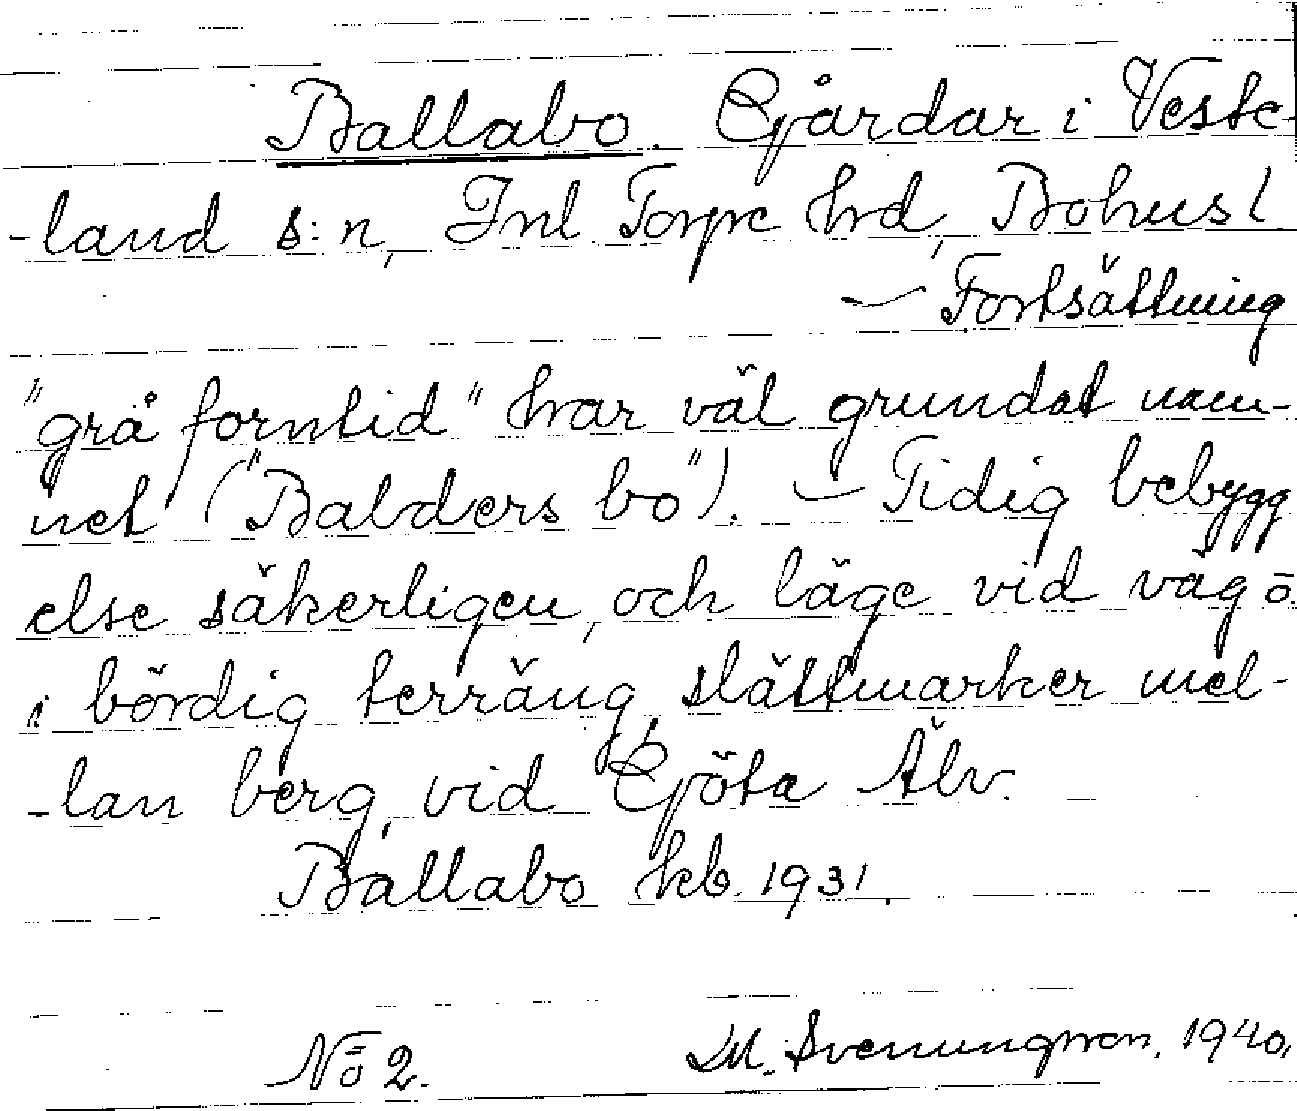 Ballabo. Gårdar i Veste-
-land s:n, Inl Torpe hd, Bohusl
— Fortsättning
"grå forntid" har väl grundat nam-
net ("Balders bo"). — Tidig bebygg
else säkerligen, och läge vid väg o.
i bördig terräng, slättmarker mel-
-lan berg, vid Göta Älv.
Ballabo kb. 1931.
No 2. M. Svenungsson. 1940.